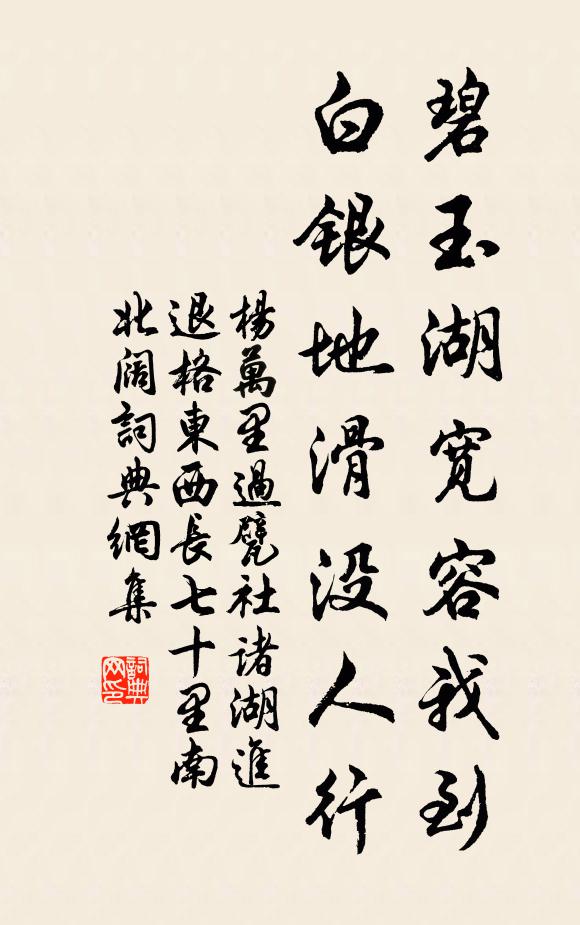 碧玉湖寬容我到
白銀地滑没人行
楊萬里過甓社諸湖進
退格東西長七十里南
北闊詞典網集
詞典
网印